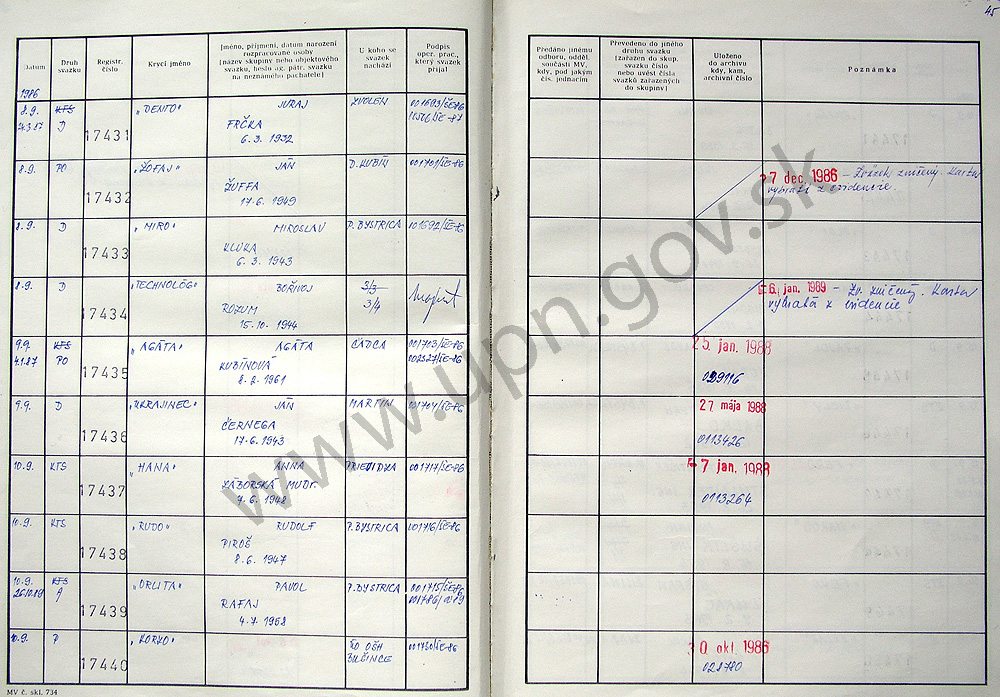 45
Datum
Druh svazku
Registr. číslo
Krycí jméno
Jméno, příjmení, datum narození rozpracované osoby (název skupiny nebo objektového svazku, heslo ag. pátr. svazku na neznámého pachatele)
U koho se svazek nachází
Podpis oper. prac., který svazek přijal
Předáno jinému odboru, odděl. součásti MV, kdy, pod jakým čís. jednacím
Převedeno do jiného druhu svazku (zařazen do skup. svazku číslo nebo uvést čísla svazků zařazených do skupiny)
Uloženo do archivu kdy, kam, archivní číslo
Poznámka
1986
8.9. KTS „DENTO" JURAJ ZVOLEN
D 17431 FRČKA
6.3. 1932
8.9. PO „ŽOFAJ" JÁN D. KUBÍN 001701/ŠE-86
17432 ŽUFFA
17.6. 1949
27 dec. 1986 – Zväzok zničený. Karta
vybratá z evidencie.
8.9. D „MIRO" MIROSLAV P. BYSTRICA 001692/ŠE-86
17433 KLUKA
6.3. 1943
8.9. D „TECHNOLÓG" BOŘIVOJ 3/3
17434 ROZUM 3/4
15.10. 1944
6. jan. 1989 – Zv. zničený. Karta
vybratá z evidencie
9.9. KTS „AGÁTA" AGÁTA ČADCA 001703/ŠE-86
4.1.87 PO 17435 KUBÍNOVÁ 002327/ŠE-86
8.2. 1961
25 jan. 1988
9.9. D „UKRAJINEC" JÁN MARTIN 001704/ŠE-86
17436 ČERNEGA
17.6. 1943
27 mája 1988
0113426
10.9. KTS „HANA" ANNA PRIEVIDZA 001717/ŠE-86
17437 ZÁBORSKÁ MUDr.
7.6. 1948
7 jan. 1988
0113264
10.9. KTS „RUDO" RUDOLF P. BYSTRICA 001716/ŠE-86
17438 PIROŠ
8.6. 1947
10.9. KTS „ORLITA" PAVOL P. BYSTRICA 001715/ŠE-86
26.10.89 A 17439 RAFAJ
4.7. 1958
10.9. P „KORKO" 001730/ŠE-86
17440
30 okt. 1986
MV č. skl. 734
www.upn.gov.sk